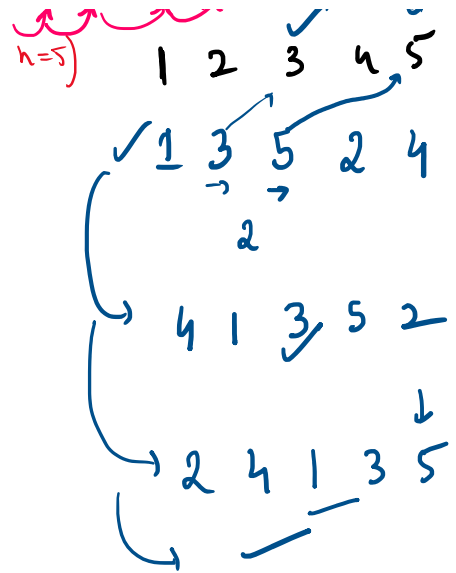 n=5)
1 2 3 4 5
1 3 5 2 4
2
4 1 3 5 2
2 4 1 3 5